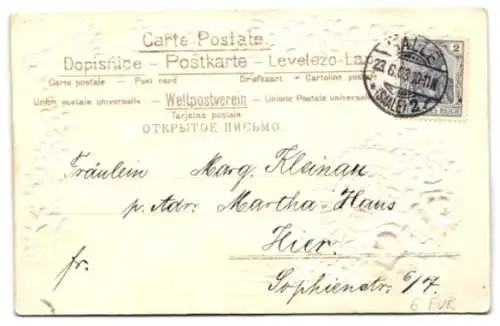 Carte Postale.
Dopisnice - Postkarte - Levelezo-La
Carte postale - Post card Briefkaart - Cartolina post
Union postale universelle - Weltpostverein - Unione Postale universale
Tarjetas postale
ОТКРЫТОЕ ПИСЬМО.
HALLE
23.6.03
(SAALE) 2
2
REICH
Fräulein Marg. Kleinau
p. Adr. Martha-Haus
Hier.
fr. Sophienstr. 6/7.
6 EUR